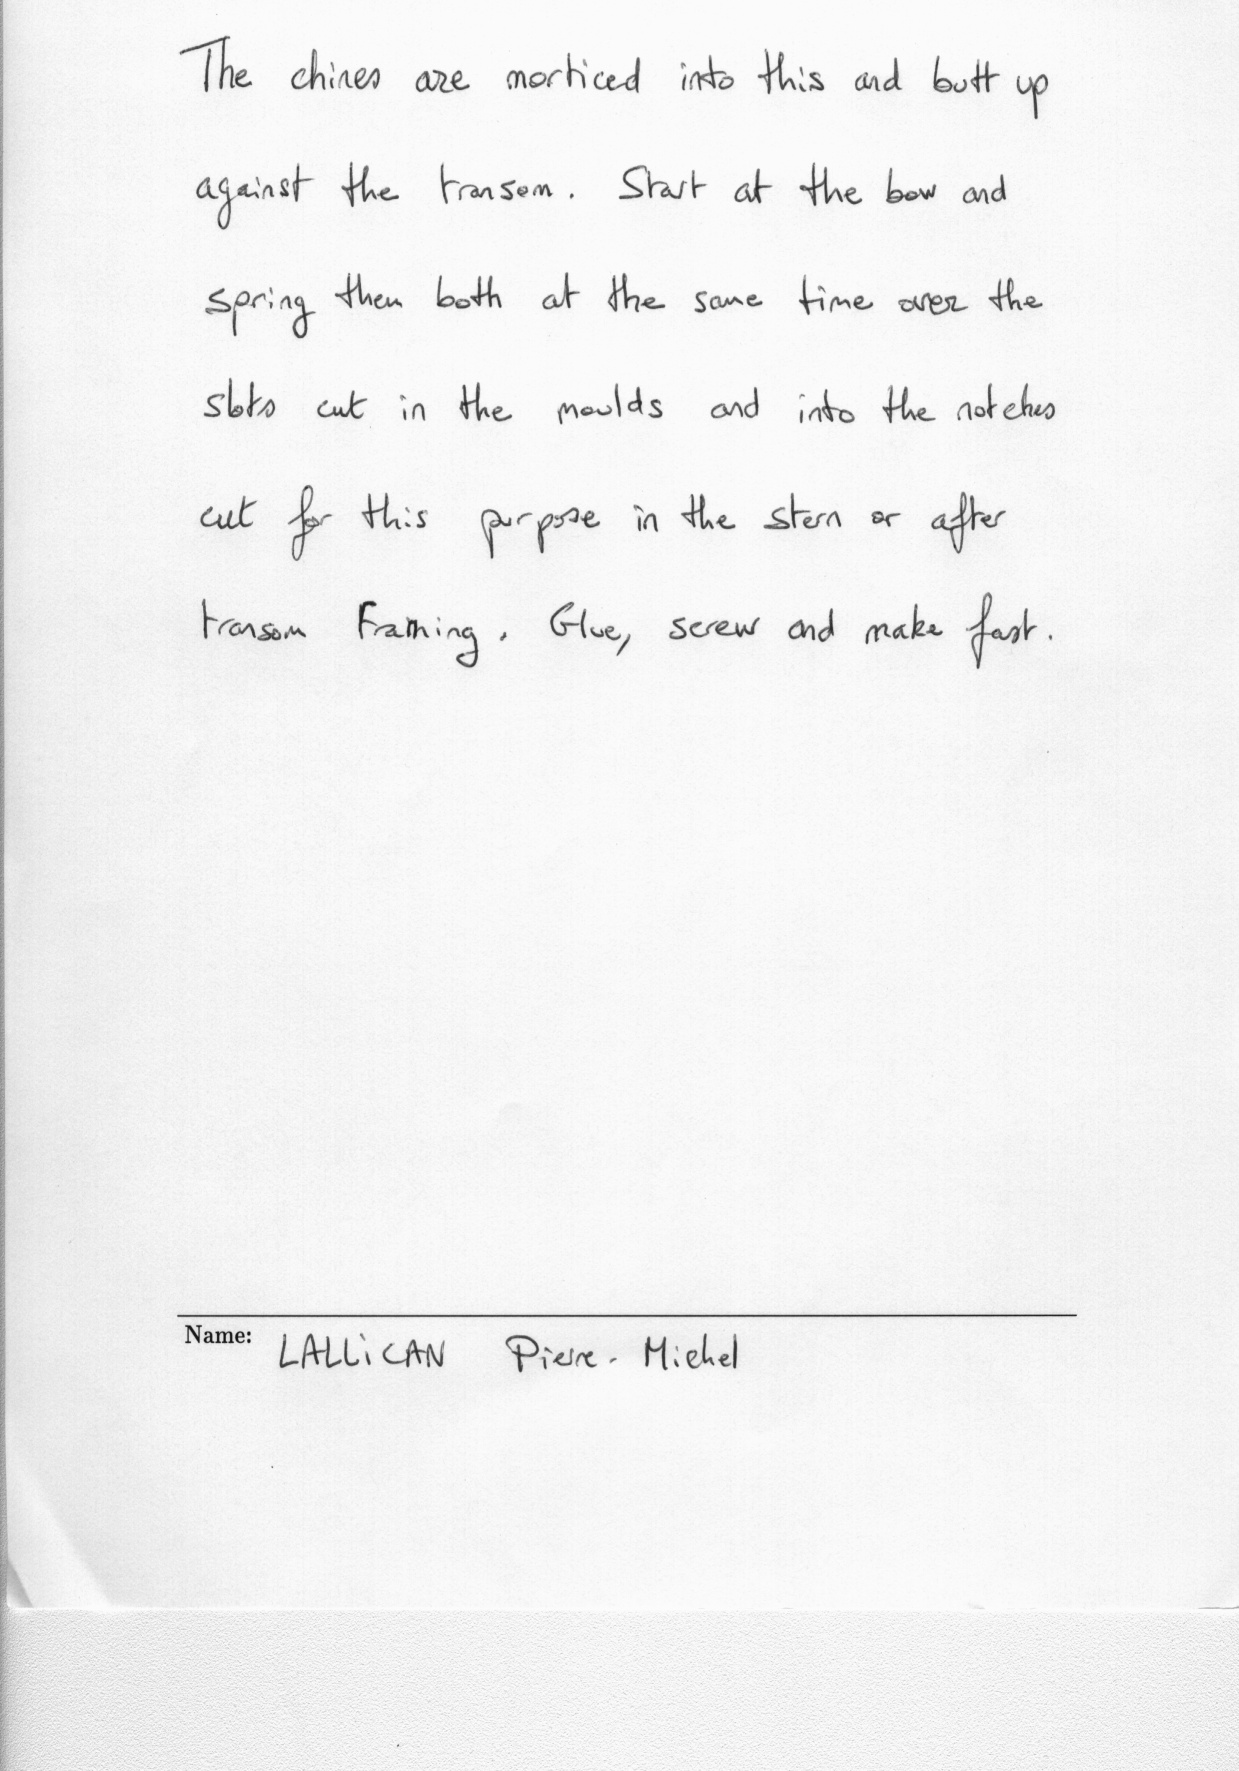 The chines are morticed into this and butt up
against the transom. Start at the bow and
spring them both at the same time over the
slots cut in the moulds and into the notches
cut for this purpose in the stern or after
transom Framing. Glue, screw and make fast.
Name: LALLiCAN Pierre-Michel